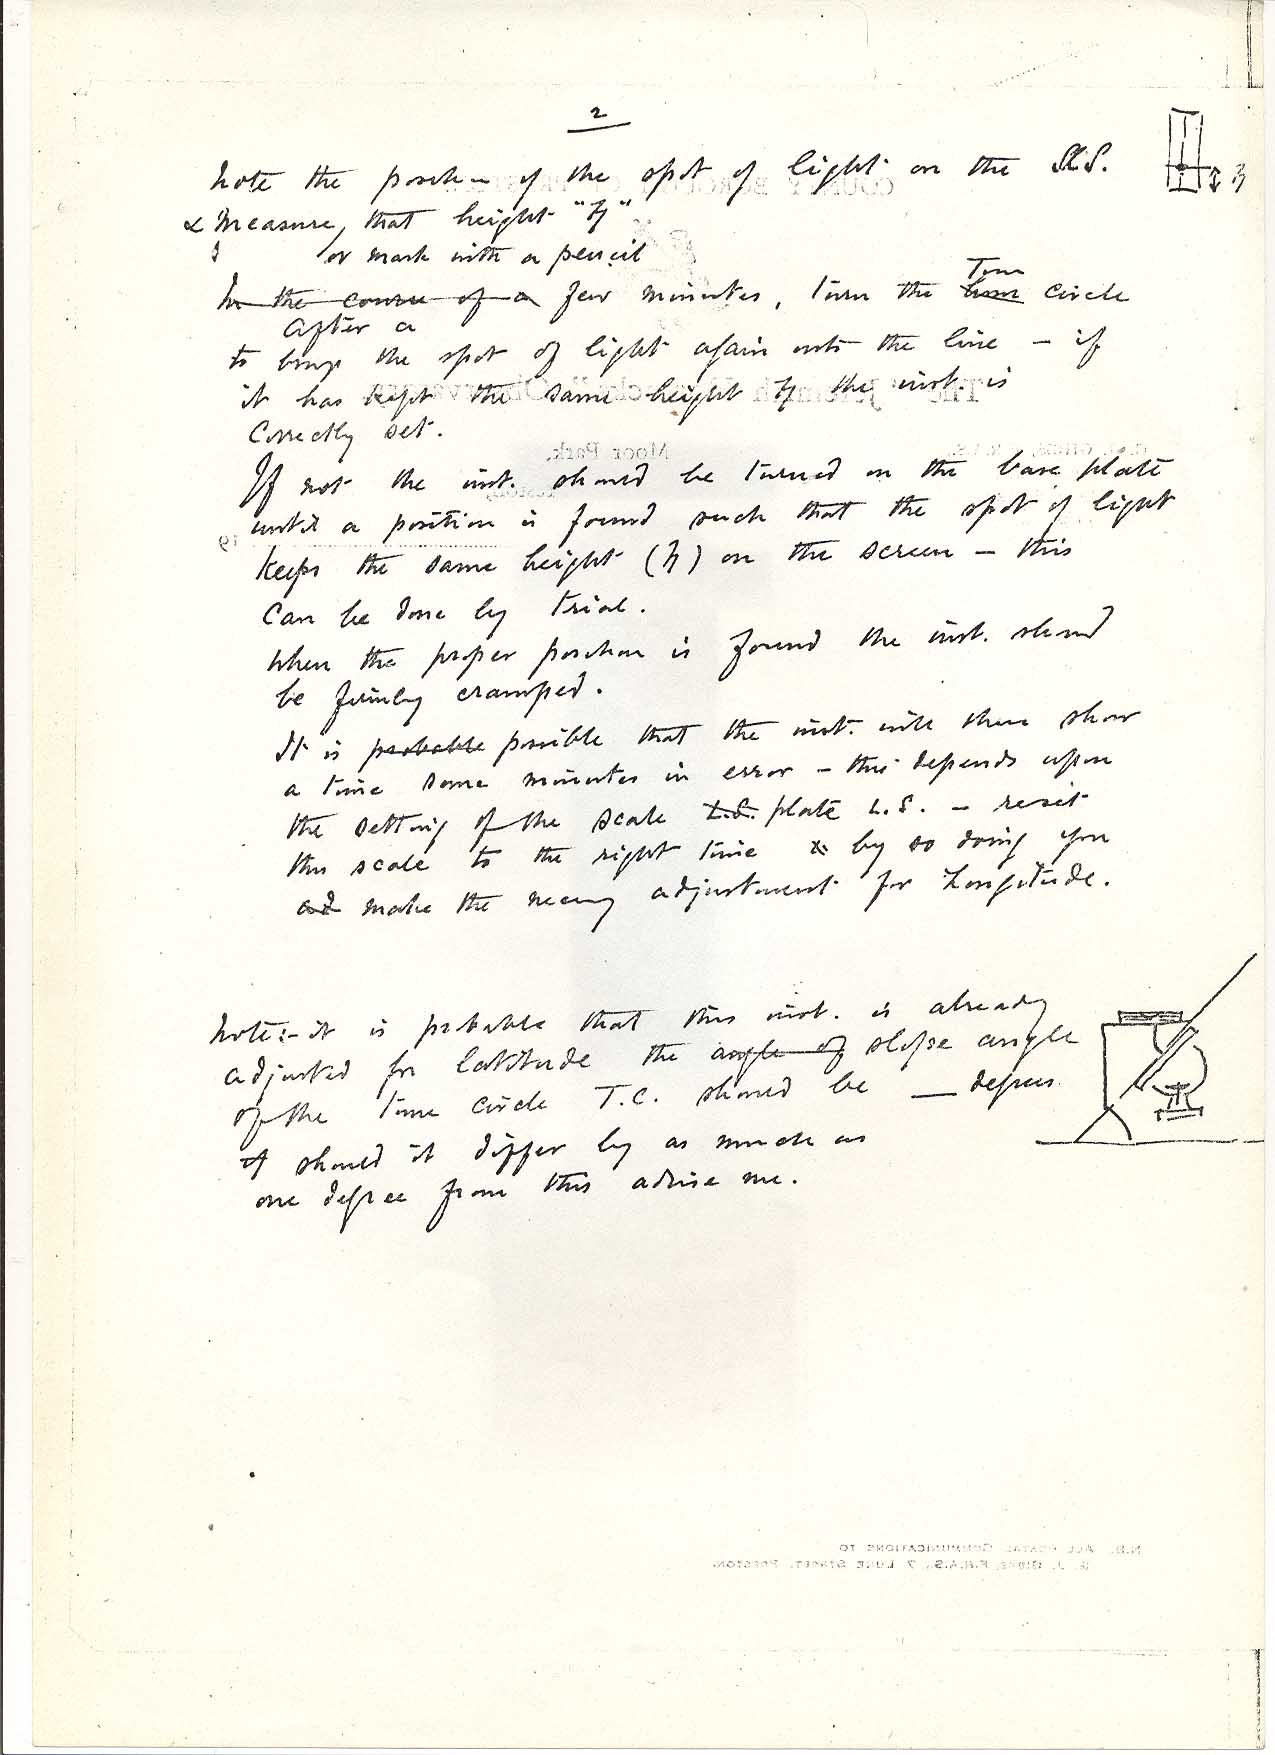 2
Note the position of the spot of light on the S.
& Measure, that height "h"
or mark with a pencil
In the course of a few minutes, turn the Time circle
After a
to bring the spot of light again onto the line - if
it has kept the same height h the inst. is
correctly set.
If not the inst. should be turned on the base plate
until a position is found such that the spot of light
keeps the same height (h) on the screen - this
can be done by trial.
When the proper position is found the inst. should
be firmly cramped.
It is probable possible that the inst. will then show
a time some minutes in error - this depends upon
the setting of the scale L.S. plate L.S. - reset
this scale to the right time & by so doing you
and make the necessy adjustment for Longitude.
h
Note:- it is probable that this inst. is already
adjusted for latitude the angle of slope angle
of the time circle T.C. should be __ degrees.
If should it differ by as much as
one degree from this advise me.
COUNTY BOROUGH OF PRESTON
The "Jeremiah Horrocks" Observatory
Moor Park,
Preston,
19
N.B. ALL POSTAL COMMUNICATIONS TO
J. GIBBS, F.R.A.S., 7 LUNE STREET, PRESTON.